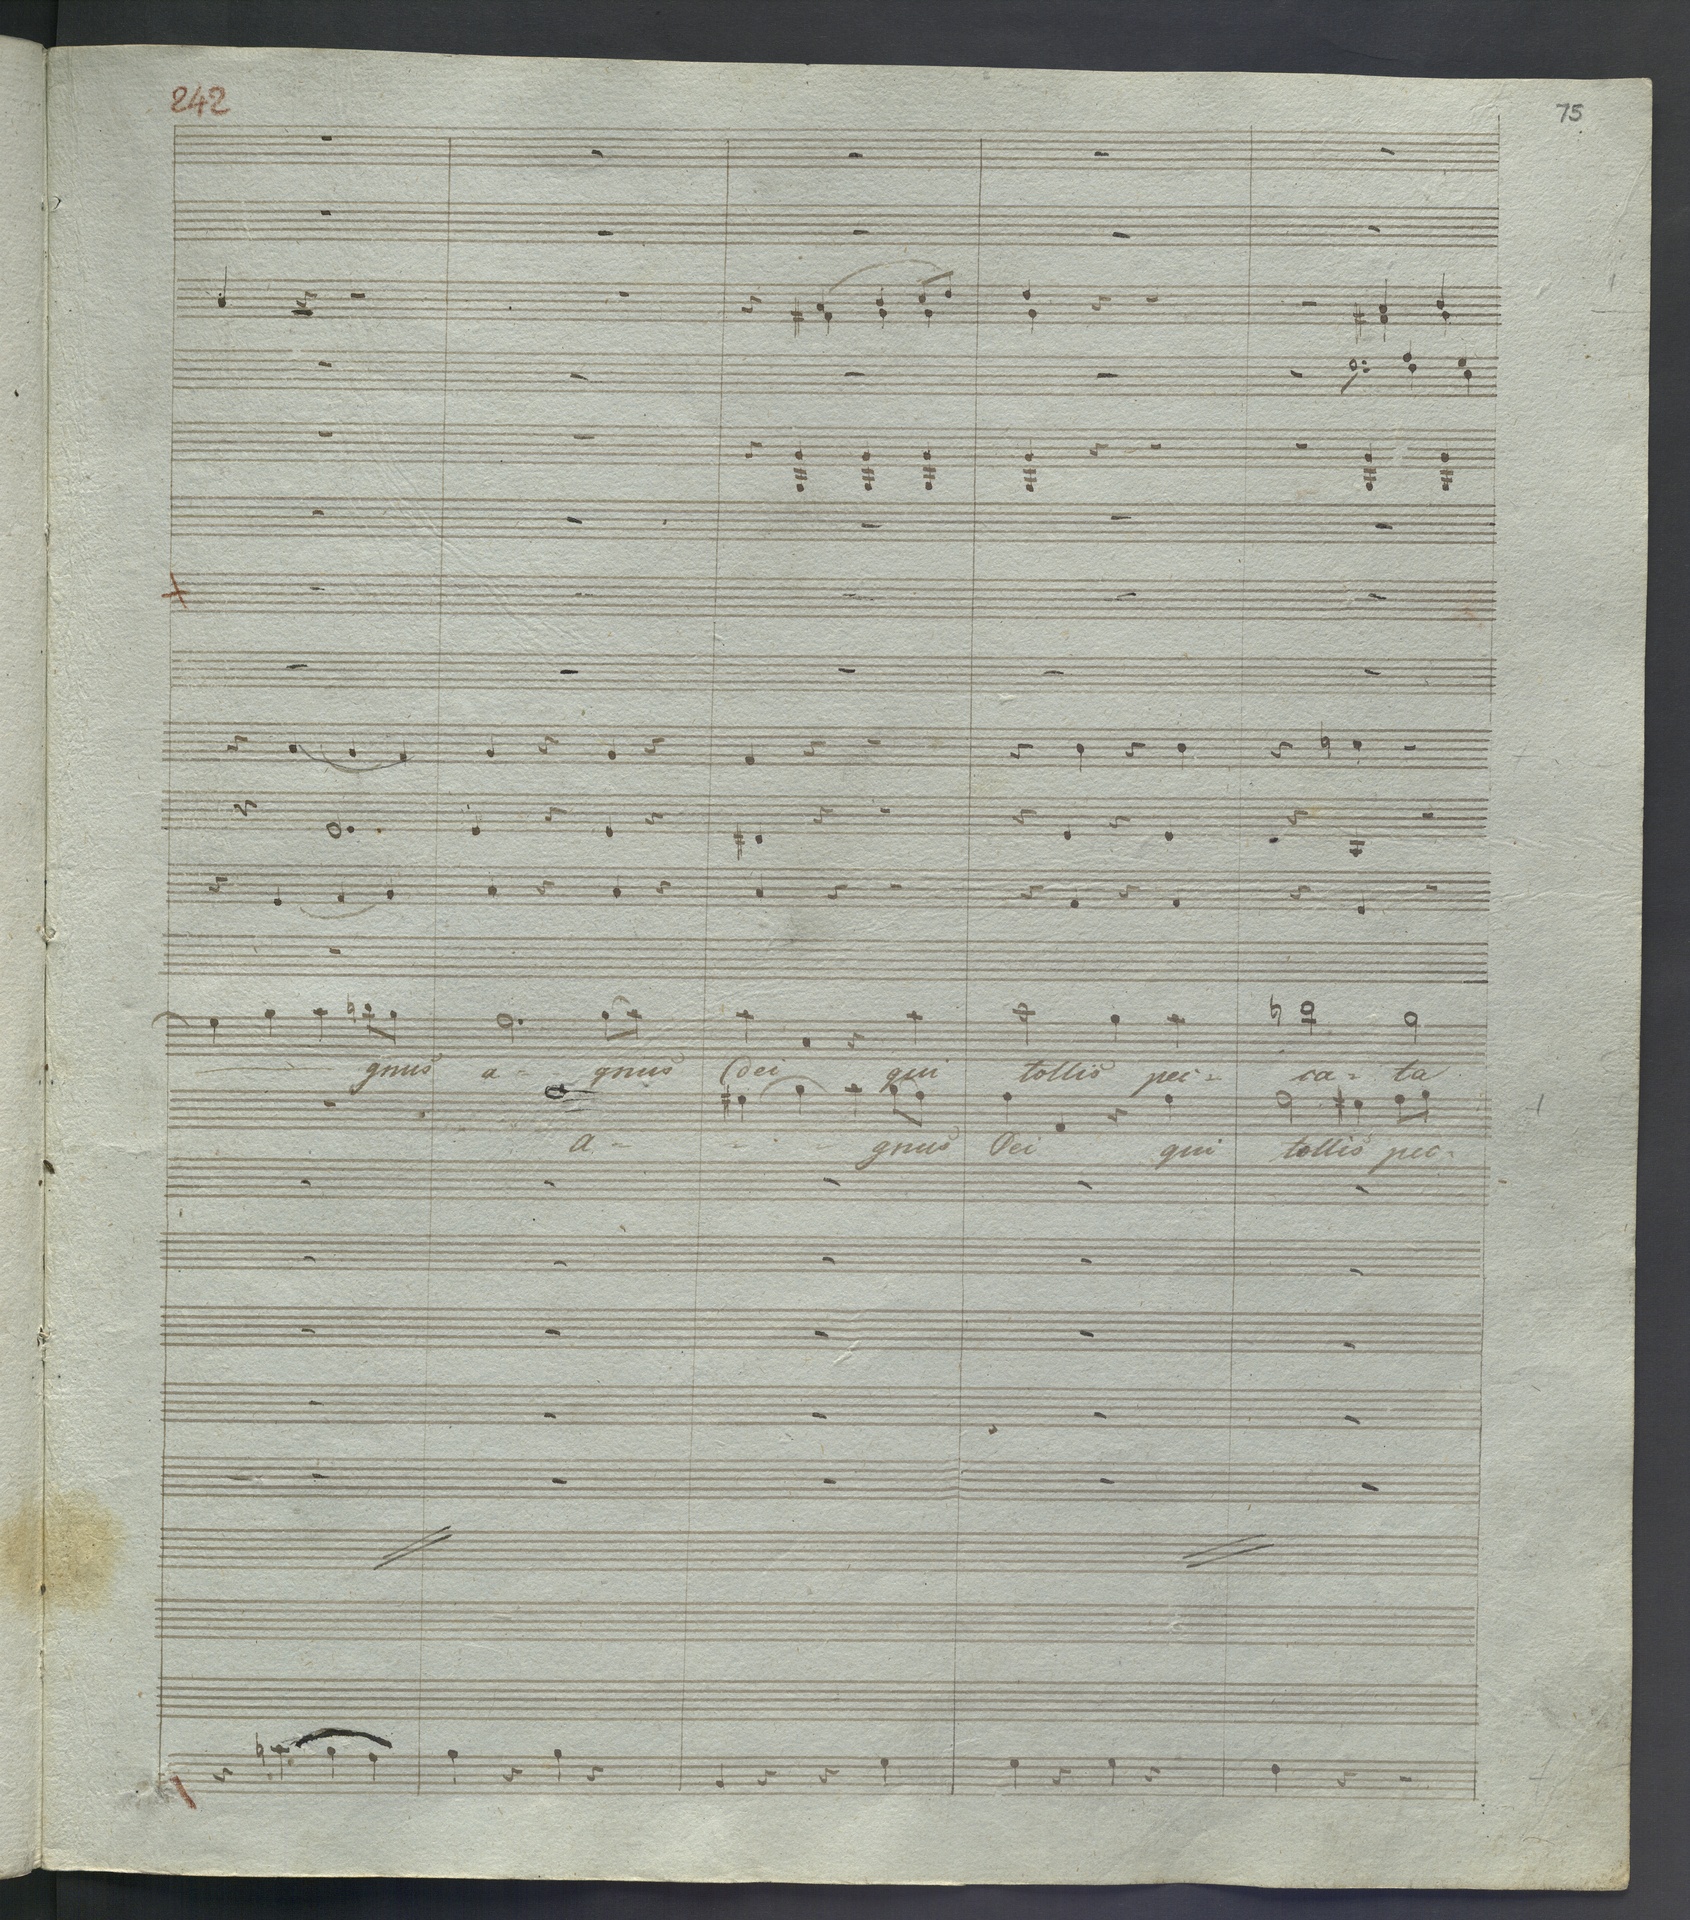 242
75
gnus a- gnus Dei qui tollis pec- ca- ta
a- - - - gnus Dei qui tollis pec-